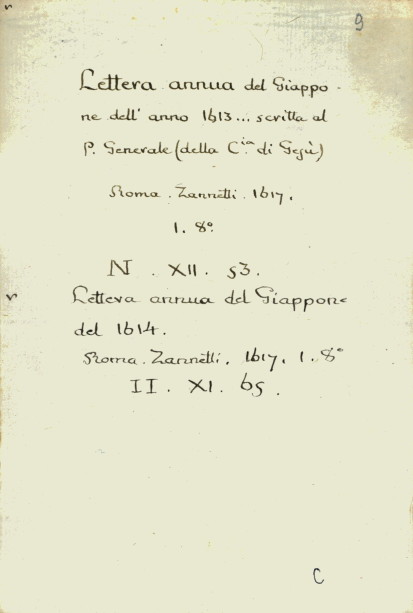 9
Lettera annua del Giappo-
ne dell' anno 1613... scritta al
P. Generale (della C.ia di Gesù)
Roma. Zannetti. 1617.
1. 8°.
N. XII. 53.
Lettera annua del Giappone
del 1614.
Roma. Zannetti. 1617. 1. 8°
II. XI. 65.
C